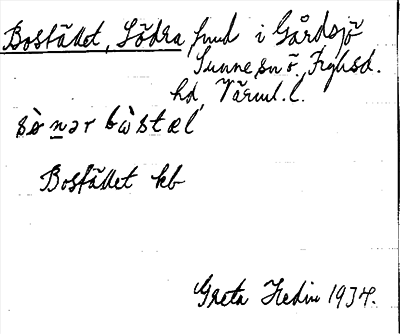 Bostället, Södra fnud i Gårdsjö
Sunne sn o. Fryksd.
hd, Värml. l.
sò̤ nər bὼstæl
Bostället kb
Greta Hedin 1934.